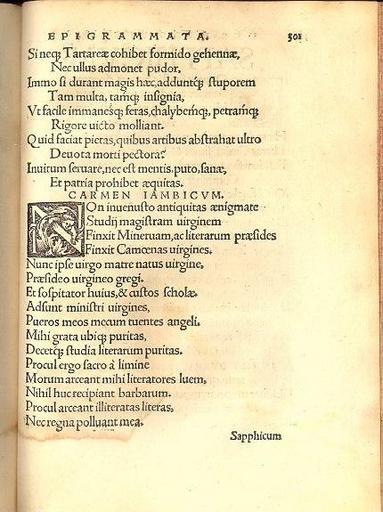 EPIGRAMMATA. 501
Si neq; Tartareæ cohibet formido gehennæ,
Nec ullus admonet pudor.
Immo si durant magis hæc, adduntq; stuporem
Tam multa, tamq; insignia,
Vt facile immanesq; feras, chalybemq;, petramq;
Rigore uicto molliant.
Quid faciat pietas, quibus artibus abstrahat ultro
Deuota morti pectora?
Inuitum seruare, nec est mentis, puto, sanæ,
Et patria prohibet æquitas.
CARMEN IAMBICVM.
NOn inuenusto antiquitas ænigmate
Studij magistram uirginem
Finxit Mineruam, ac literarum præsides
Finxit Camœnas uirgines.
Nunc ipse uirgo matre natus uirgine,
Præsideo uirgineo gregi.
Et sospitator huius, & custos scholæ.
Adsunt ministri uirgines,
Pueros meos mecum tuentes angeli.
Mihi grata ubiq; puritas,
Decetq; studia literarum puritas.
Procul ergo sacro à limine
Morum arceant mihi literatores luem,
Nihil huc recipiant barbarum.
Procul arceant illiteratas literas,
Nec regna polluant mea.
Sapphicum